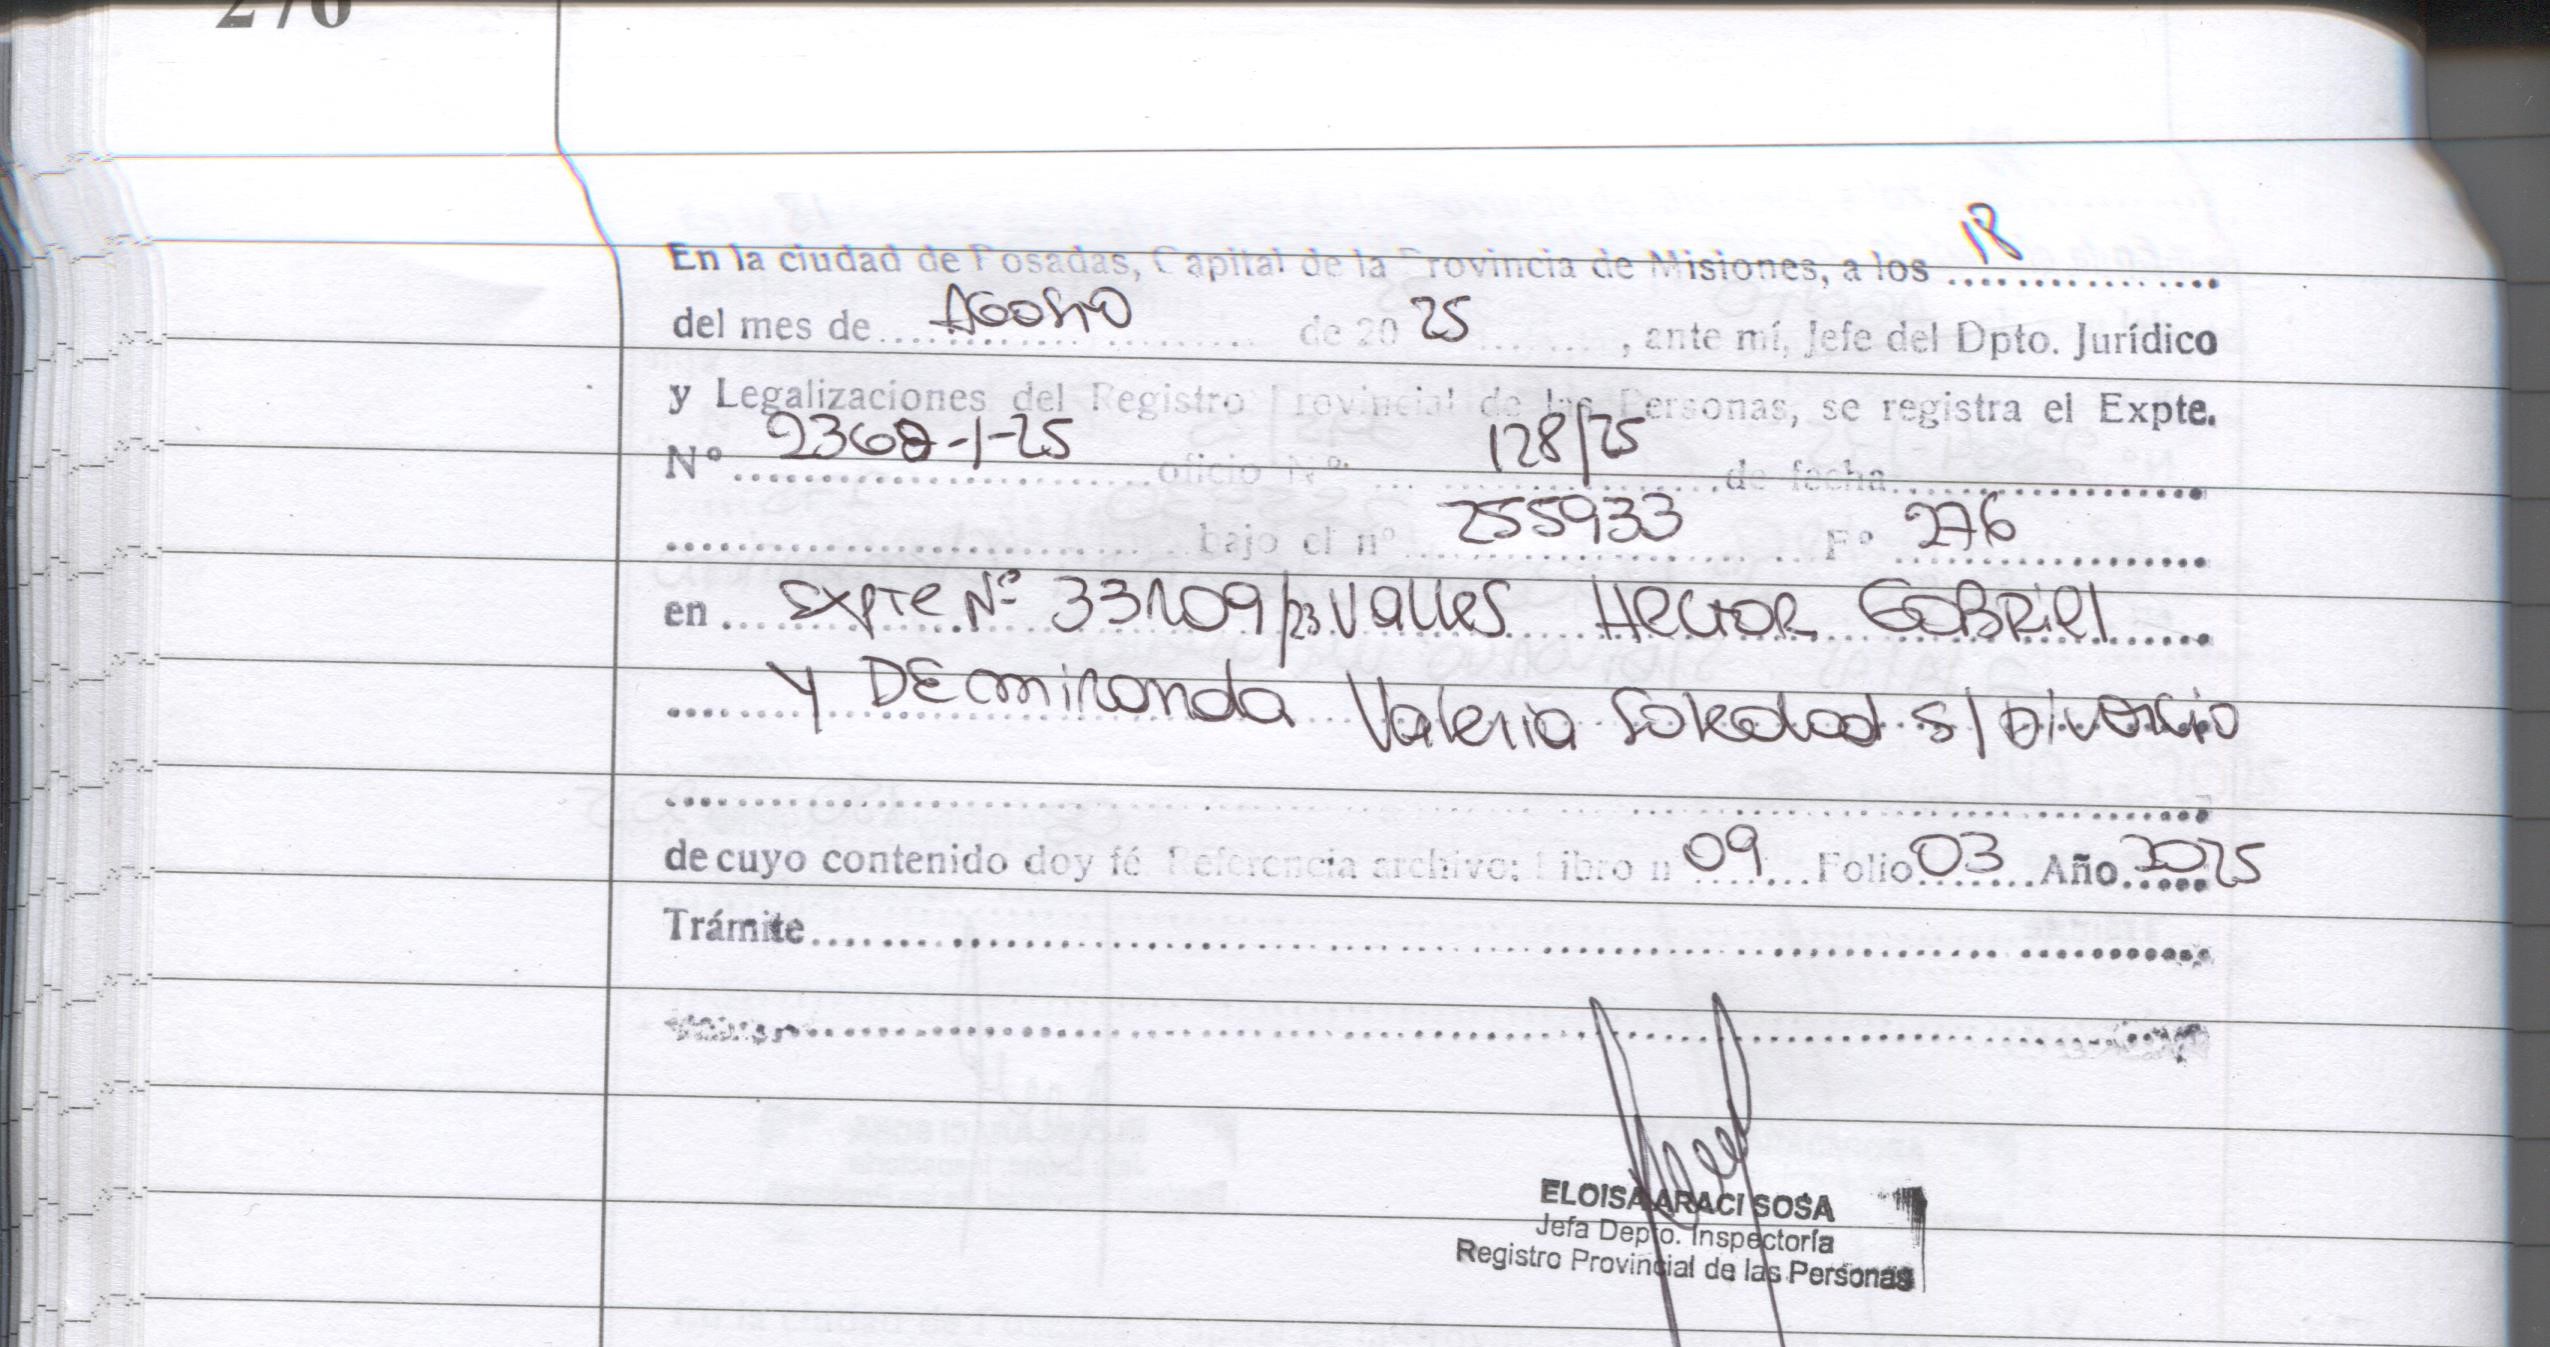 276
En la ciudad de Posadas, Capital de la Provincia de Misiones, a los 18
del mes de Agosto de 20 25, ante mí, Jefe del Dpto. Jurídico
y Legalizaciones del Registro Provincial de las Personas, se registra el Expte.
Nº 2368-1-25 oficio Nº 128/25 de fecha
bajo el nº 255933 Fº 276
en Expte Nº 33109/23 Valles Hector Gabriel
y DE miranda Valeria Soledad s/ Divorcio
de cuyo contenido doy fé Referencia archivo: Libro n 09 Folio 03 Año 2025
Trámite
ELOISA ARACI SOSA
Jefa Depto. Inspectoría
Registro Provincial de las Personas